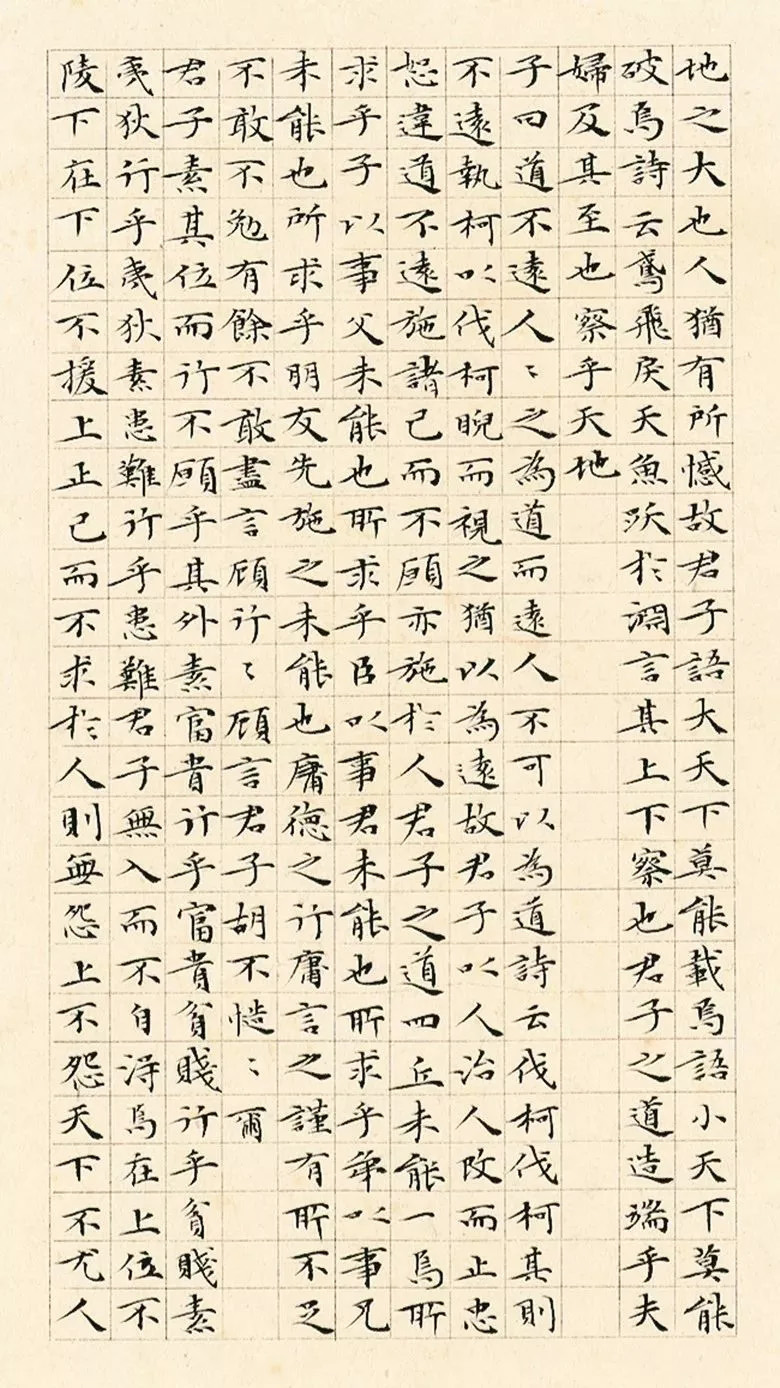 地之大也人猶有所憾故君子語大天下莫能載焉語小天下莫能
破焉詩云鳶飛戾天魚跃於淵言其上下察也君子之道造端乎夫
婦及其至也察乎天地
子曰道不遠人〻之為道而遠人不可以為道詩云伐柯伐柯其則
不遠執柯以伐柯睨而視之猶以為遠故君子以人治人改而止忠
恕違道不遠施諸己而不願亦施於人君子之道四丘未能一焉所
求乎子以事父未能也所求乎臣以事君未能也所求乎弟以事兄
未能也所求乎朋友先施之未能也庸德之行庸言之謹有所不足
不敢不勉有餘不敢盡言顧行〻顧言君子胡不慥〻爾
君子素其位而行不願乎其外素富貴行乎富貴貧賤行乎貧賤素
夷狄行乎夷狄素患難行乎患難君子無入而不自得焉在上位不
陵下在下位不援上正己而不求於人則無怨上不怨天下不尤人